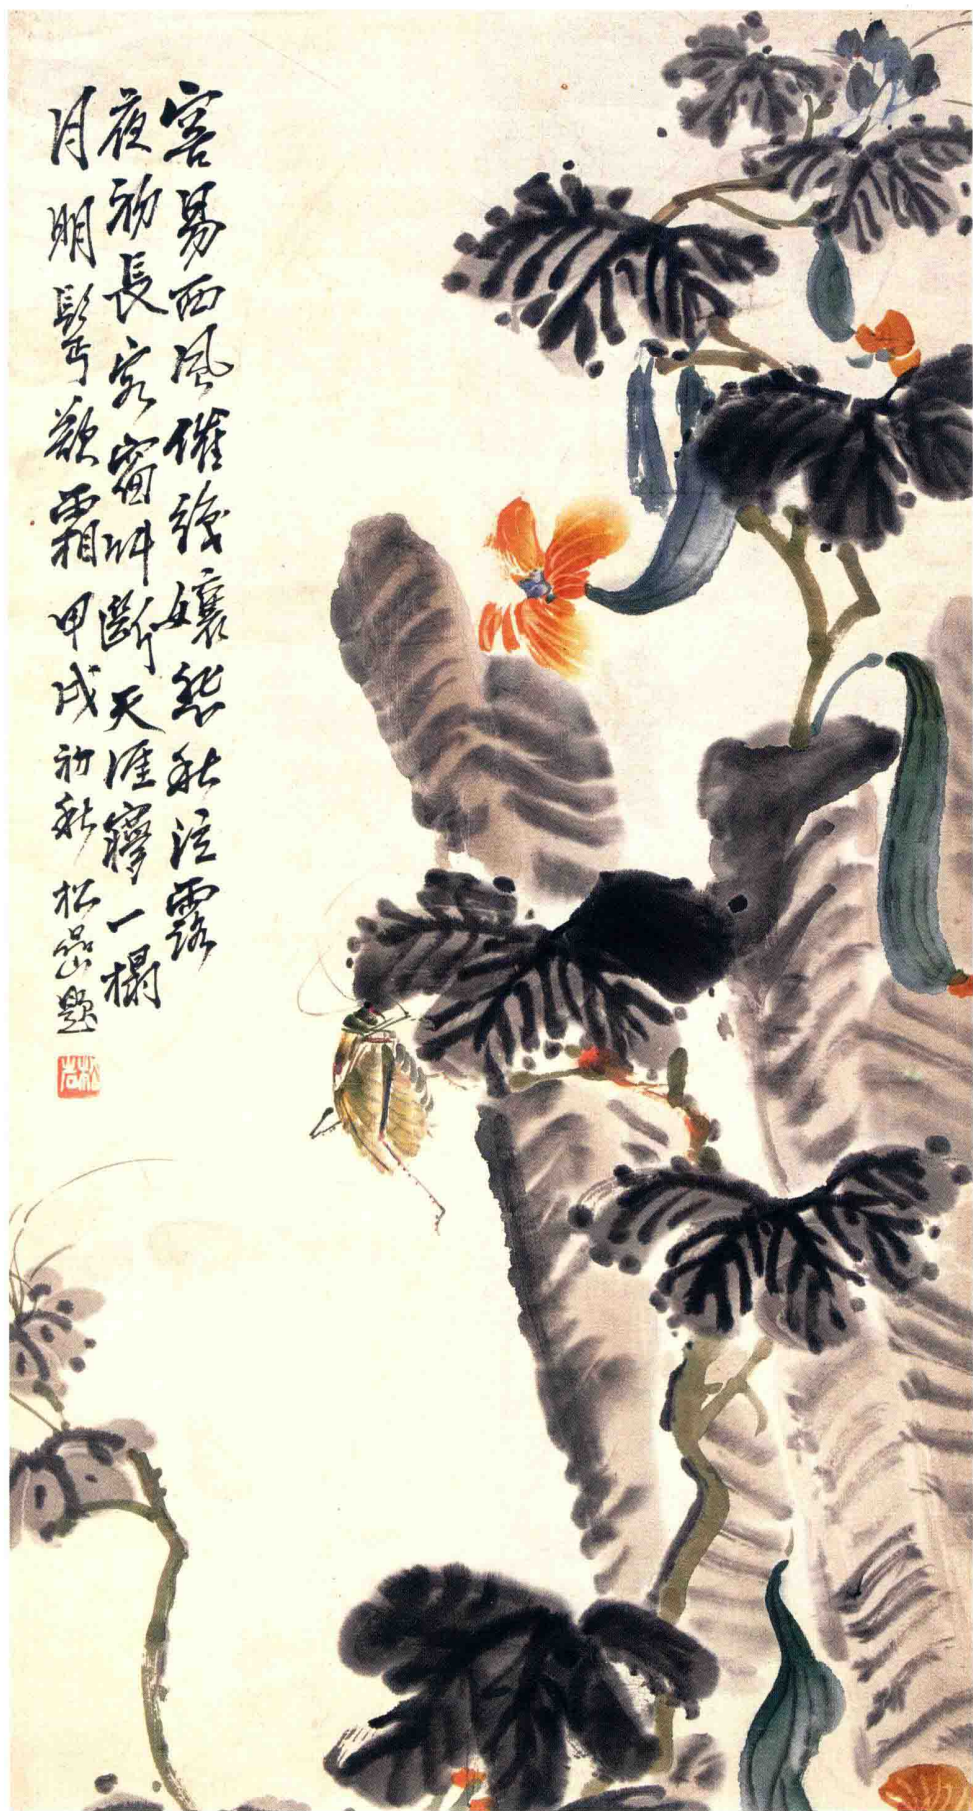 容易西風催織孃愁秋泣露
夜初長客窗叫斷天涯夢一榻
月明鬢欲霜 甲戌初秋 松嵒題